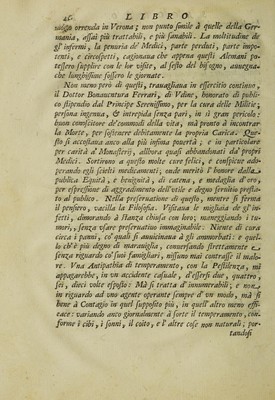 46 LIBRO
naigo orrenda in Verona; non punto simile à quelle della Ger-
mania, assai più trattabili, e più sanabili. La moltitudine de
gl'infermi, la penuria de' Medici, parte perduti, parte impo-
tenti, e circospetti, cagionaua che appena questi Alemani po-
tessero supplire con le lor visite, al sesto del bisogno, auuegna-
che longhissime fossero le giornate.
Non meno però di questi, trauagliaua in essercitio continuo,
il Dottor Bonauentura Ferrari, di Vdine, honorato di publi-
co stipendio dal Principe Serenissimo, per la cura delle Militie;
persona ingenua, & intrepida senza pari, in sì gran pericolo:
buon conoscitore de' commodi della vita, mà pronto à incontrar
la Morte, per sostenere debitamente la propria Carica. Que-
sti si accostaua anco alla più infima pouertà, e in particolare
per carità a' Monasterij, allhora quasi abbandonati da' propri
Medici. Sortirono a questo molte cure felici, e conspicue ado-
perando egli scielti medicamenti, onde meritò l'honore dalla
publica Equità, e benignità, di catena, e medaglia d'oro,
per espressione di aggradimento dell'vtile e degno seruitio presta-
to al publico. Nella preseruatione di questo, mentre si ferma
il pensiero, vacilla la Filosofia. Visitaua le migliaia de gl'in-
fetti, dimorando à stanza chiusa con loro; maneggiando i tu-
mori, senza vsare preseruatiuo immaginabile: Niente di cura
circa i panni, co' quali si auuicinaua à gli ammorbati: e quel-
lo ch'è più degno di marauiglia, conuersando strettamente e
senza riguardo co' suoi famigliari, nissuno mai contrasse il malo-
re. Vna Antipathia di temperamento, con la Pestilenza, mi
appagarebbe, in vn accidente casuale, d'essersi due, quattro,
sei, dieci volte esposto: Mà si tratta d'innumerabili; e non
in riguardo ad vno agente operante sempre d'vn modo, mà sì
bene à Contagio in quel supposito più, in quell'altro meno effi-
cace: variando anco giornalmente à sorte il temperamento, con-
forme i cibi, i sonni, il coito, e l'altre cose non naturali; por-
tandosi